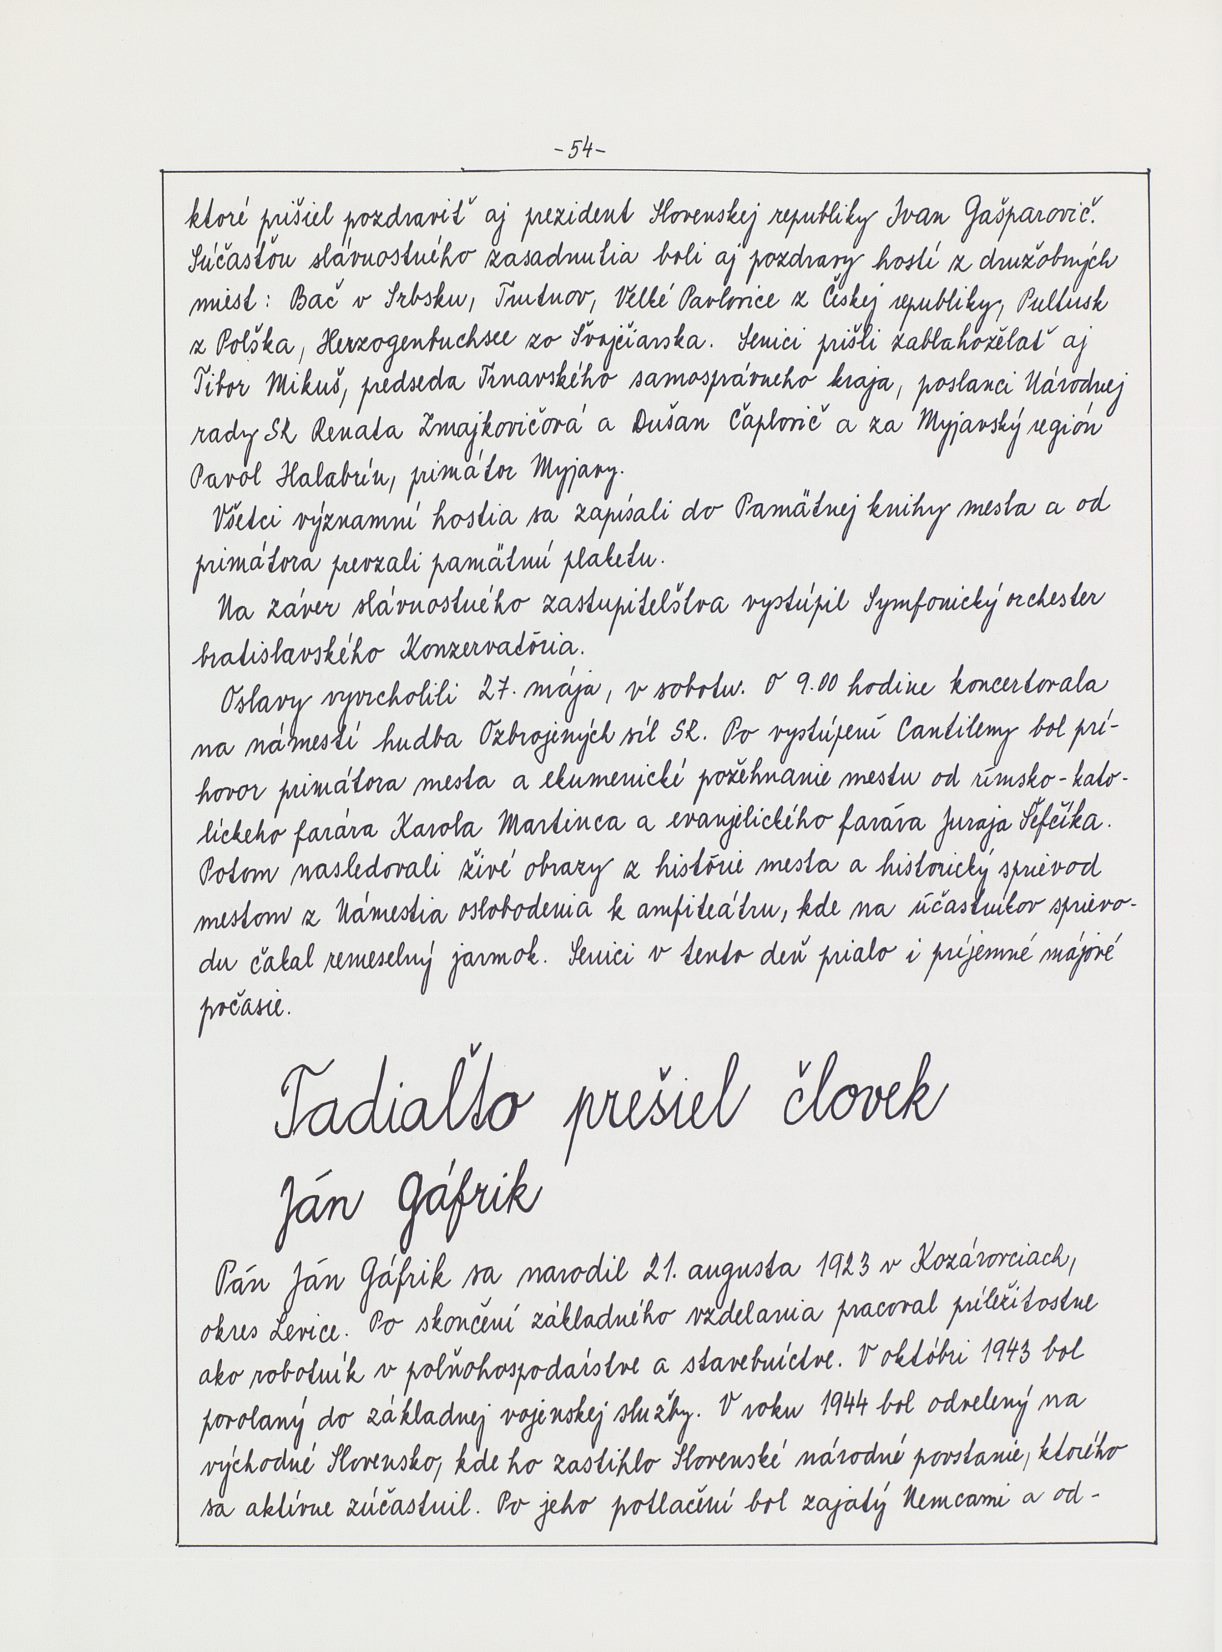 -54-
ktoré prišiel pozdraviť aj prezident Slovenskej republiky Ivan Gašparovič.
Súčasťou slávnostného zasadnutia boli aj pozdravy hostí z družobných
miest: Bač v Srbsku, Trutnov, Velké Pavlovice z Českej republiky, Pultusk
z Poľska, Herzogenbuchsee zo Švajčiarska. Senici prišli zablahoželať aj
Tibor Mikuš, predseda Trnavského samosprávneho kraja, poslanci Národnej
rady SR Renata Zmajkovičová a Dušan Čaplovič a za Myjavský región
Pavol Halabrín, primátor Myjavy.
Všetci významní hostia sa zapísali do Pamätnej knihy mesta a od
primátora prevzali pamätnú plaketu.
Na záver slávnostného zastupiteľstva vystúpil Symfonický orchester
bratislavského Konzervatória.
Oslavy vyvrcholili 27. mája, v sobotu. O 9.00 hodine koncertovala
na námestí hudba Ozbrojených síl SR. Po vystúpení Cantileny bol prí-
hovor primátora mesta a ekumenické požehnanie mestu od rímsko-kato-
líckeho farára Karola Martinca a evanjelického farára Juraja Šefčíka.
Potom nasledovali živé obrazy z histórie mesta a historický sprievod
mestom z Námestia oslobodenia k amfiteátru, kde na účastníkov sprievo-
du čakal remeselný jarmok. Senici v tento deň prialo i príjemné májové
počasie.
Tadiaľto prešiel človek
Ján Gáfrik
Pán Ján Gáfrik sa narodil 21. augusta 1923 v Kozárovciach,
okres Levice. Po skončení základného vzdelania pracoval príležitostne
ako robotník v poľnohospodárstve a stavebníctve. V októbri 1943 bol
povolaný do základnej vojenskej služby. V roku 1944 bol odvelený na
východné Slovensko, kde ho zastihlo Slovenské národné povstanie, ktorého
sa aktívne zúčastnil. Po jeho potlačení bol zajatý Nemcami a od-